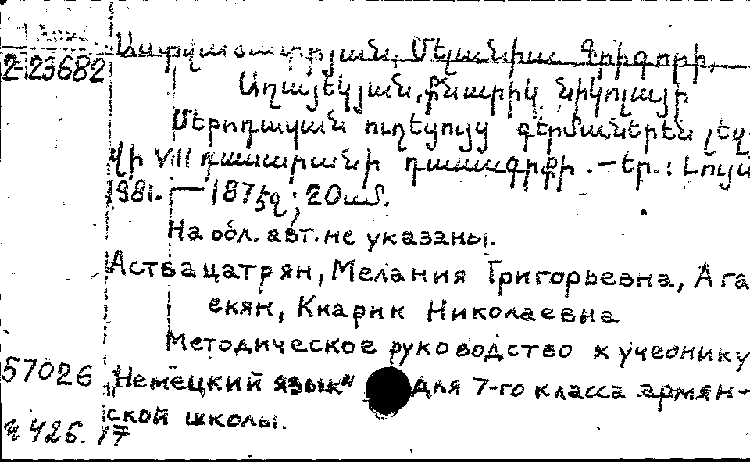 2-23682 Աստվածատրյան, Մելանիա Գրիգորի,
Աղայեկյան, Քնարիկ Նիկոլայի
Մեթոդական ուղեցույց գերմաներեն լեզ-
վի VIII դասարանի դասագրքի. — Եր.: Լույս
1981. — 187 էջ; 20 սմ.
На обл. авт. не указаны.
Аствацатрян, Мелания Григорьевна, Ага-
екян, Кнарик Николаевна
Методическое руководство к учебнику
57026 „Немецкий язык" для 7-го класса армян-
ской школы.
426. 17